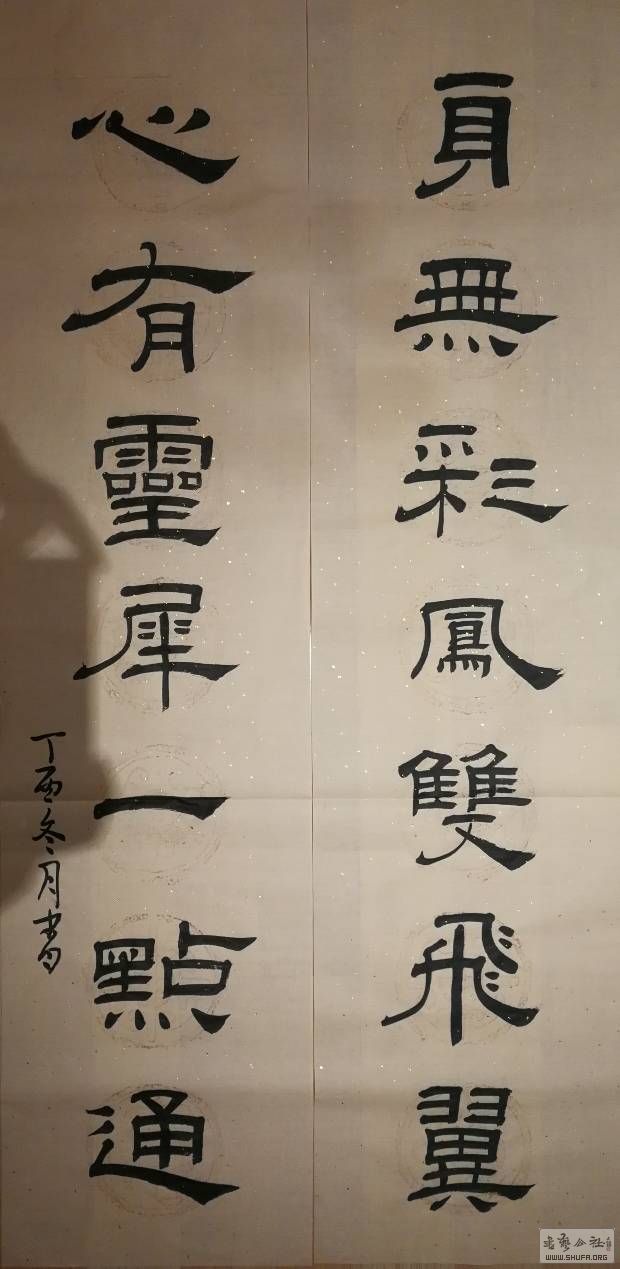 身無彩鳳雙飛翼
心有靈犀一點通
丁酉冬月書
WWW.SHUFA.ORG